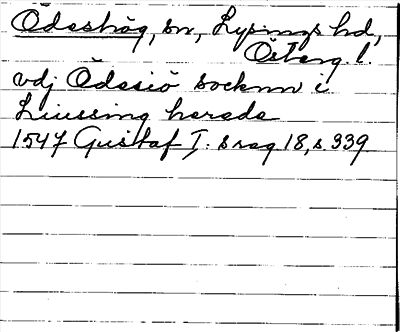 Ödeshög, sn, Lysings hd,
Österg. l.
vdj Ödesiö socknn i
Liussing herede
1547 Gustaf I:s reg 18, s. 339